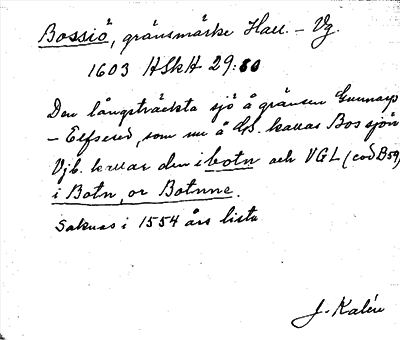 Bossiö, gränsmärke Hall. - Vg.
1603 HSkH 29:80
Den långsträckta sjö å gränsen Gunnarp
- Elfsered, som nu å GS. kallas Bossjön
Vjb. kallar den i botn och VGL (cod B59)
i Botn, or Botnne.
Saknas i 1554 års lista
J. Kalén